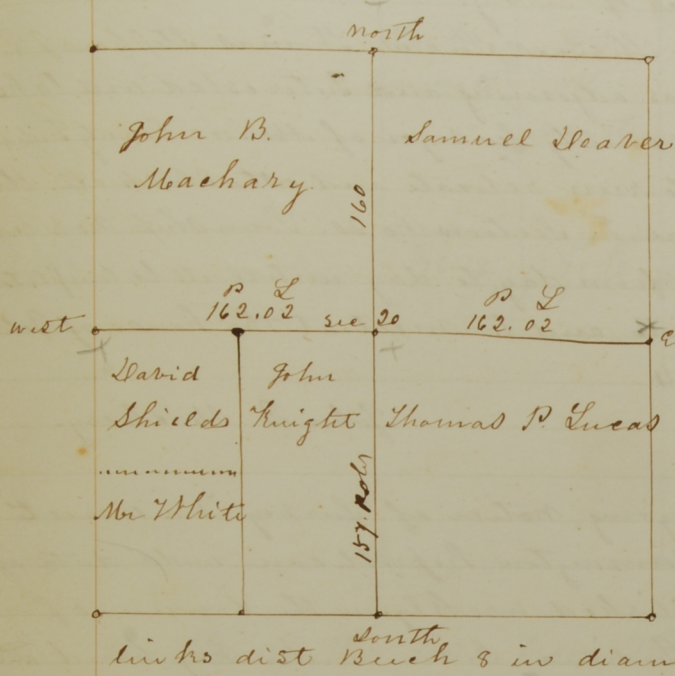 north
John B.
Machary
Samuel Doaver
160
P L
162.02
P L
162.02
west
sec 20
David
Shields
John
Knight
Thomas P. Lucas
Mr White
157. Rods
South
links dist Beech 8 in diam